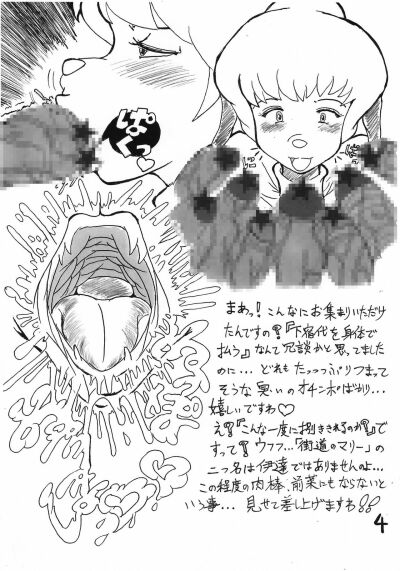 ぱくっ♡
まあっ!こんなにお集まりいただけ
たんですの!?『下宿代を身体で
払う』なんて冗談かと思ってました
のに…どれもたっっっぷりつまって
そうな臭いのオチンポばかり…
嬉しいですわ♡
え!?『こんな一度に捌ききれるのか!?』で
すって!?ウフフ…「街道のマリー」の
二つ名は伊達ではありませんのよ…
この程度の肉棒、前菜にもならないと
いう事…見せて差し上げますわ!!
4